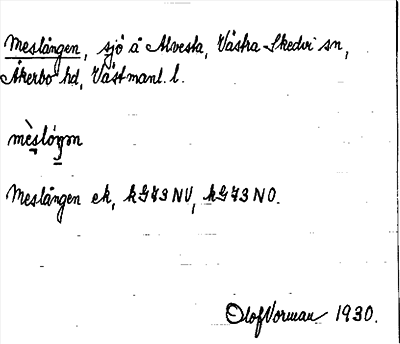 Meslången, sjö å Alvesta, Västra Skedvi sn,
Åkerbo hd, Västmanl. l.
Meslången ek, kG73NV, kG73NO.
Olof Vorman 1930.